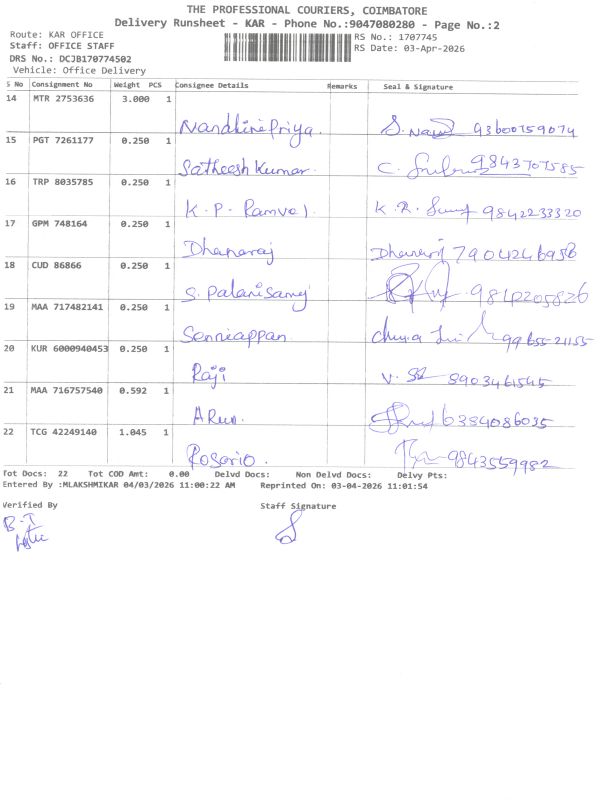 THE PROFESSIONAL COURIERS, COIMBATORE
Delivery Runsheet - KAR - Phone No.:9047080280 - Page No.:2
Route: KAR OFFICE
Staff: OFFICE STAFF
DRS No.: DCJB170774502
Vehicle: Office Delivery
RS No.: 1707745
RS Date: 03-Apr-2026
S No Consignment No Weight PCS Consignee Details Remarks Seal & Signature
14 MTR 2753636 3.000 1
Nandhinipriya. 93600759074
15 PGT 7261177 0.250 1
Satheesh Kumar. C. 9843707585
16 TRP 8035785 0.250 1
K. P. Ramvel 9842233320
17 GPM 748164 0.250 1
Dhanaraj Dhanaraj 7904246958
18 CUD 86866 0.250 1
S. Palanisamy 9842205826
19 MAA 717482141 0.250 1
Senniappan 9965521155
20 KUR 6000940453 0.250 1
Raji 8903461545
21 MAA 716757540 0.592 1
ARun. 6384086035
22 TCG 42249140 1.045 1
Rosario. 9843559982
Tot Docs: 22 Tot COD Amt: 0.00 Delvd Docs: Non Delvd Docs: Delvy Pts:
Entered By :MLAKSHMIKAR 04/03/2026 11:00:22 AM Reprinted On: 03-04-2026 11:01:54
Verified By Staff Signature